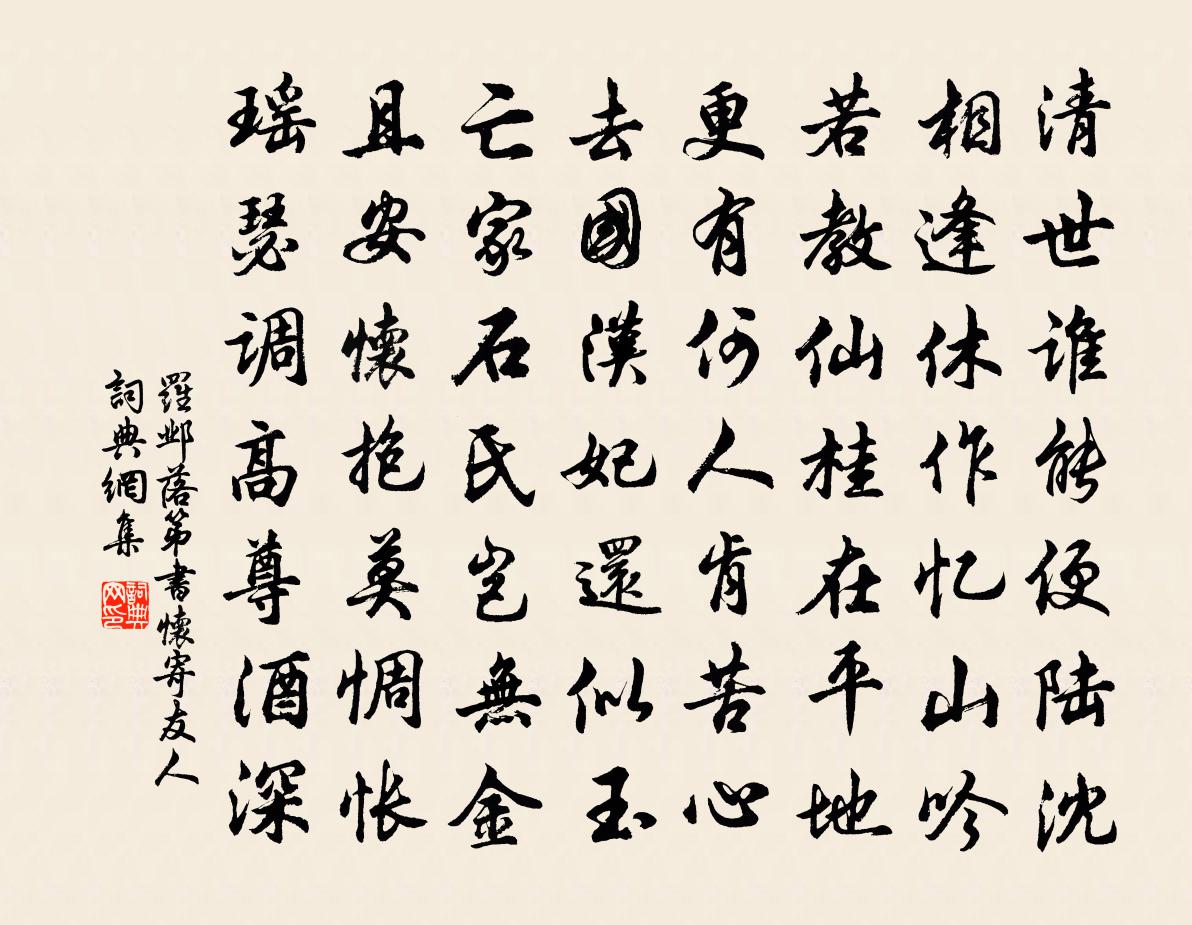 清世谁能便陆沈
相逢休作忆山吟
若教仙桂在平地
更有何人肯苦心
去國漢妃還似玉
亡家石氏岂無金
且安懷抱莫惆怅
瑶瑟调高尊酒深
羅邺落第書懷寄友人
詞典網集
詞典网印